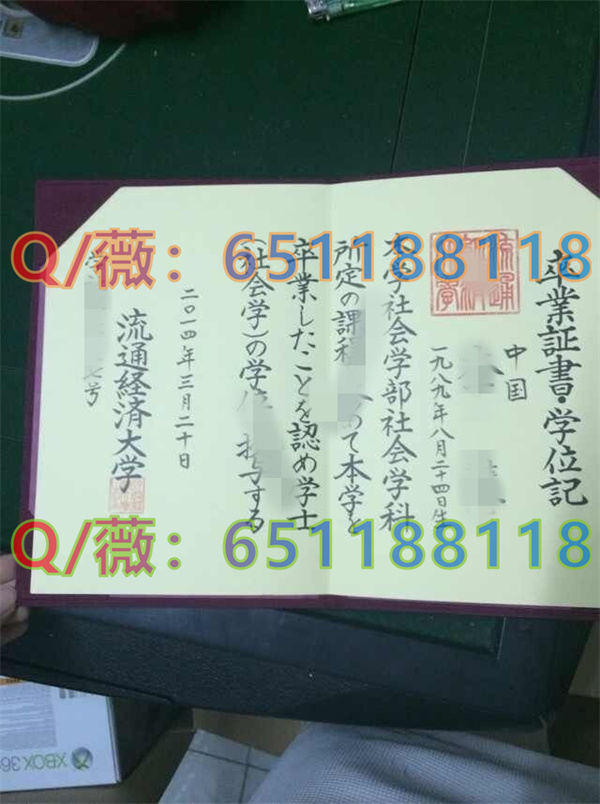 Q/薇：651188118
卒業証書・学位記
中国
一九八九年八月二十四日生
本学社会学部社会学科
所定の課程
めて本学を
卒業したことを認め学士
（社会学）の学位
授与する
二〇一四年三月二十日
流通経済大学
学
七号
Q/薇：651188118
XBOX 360